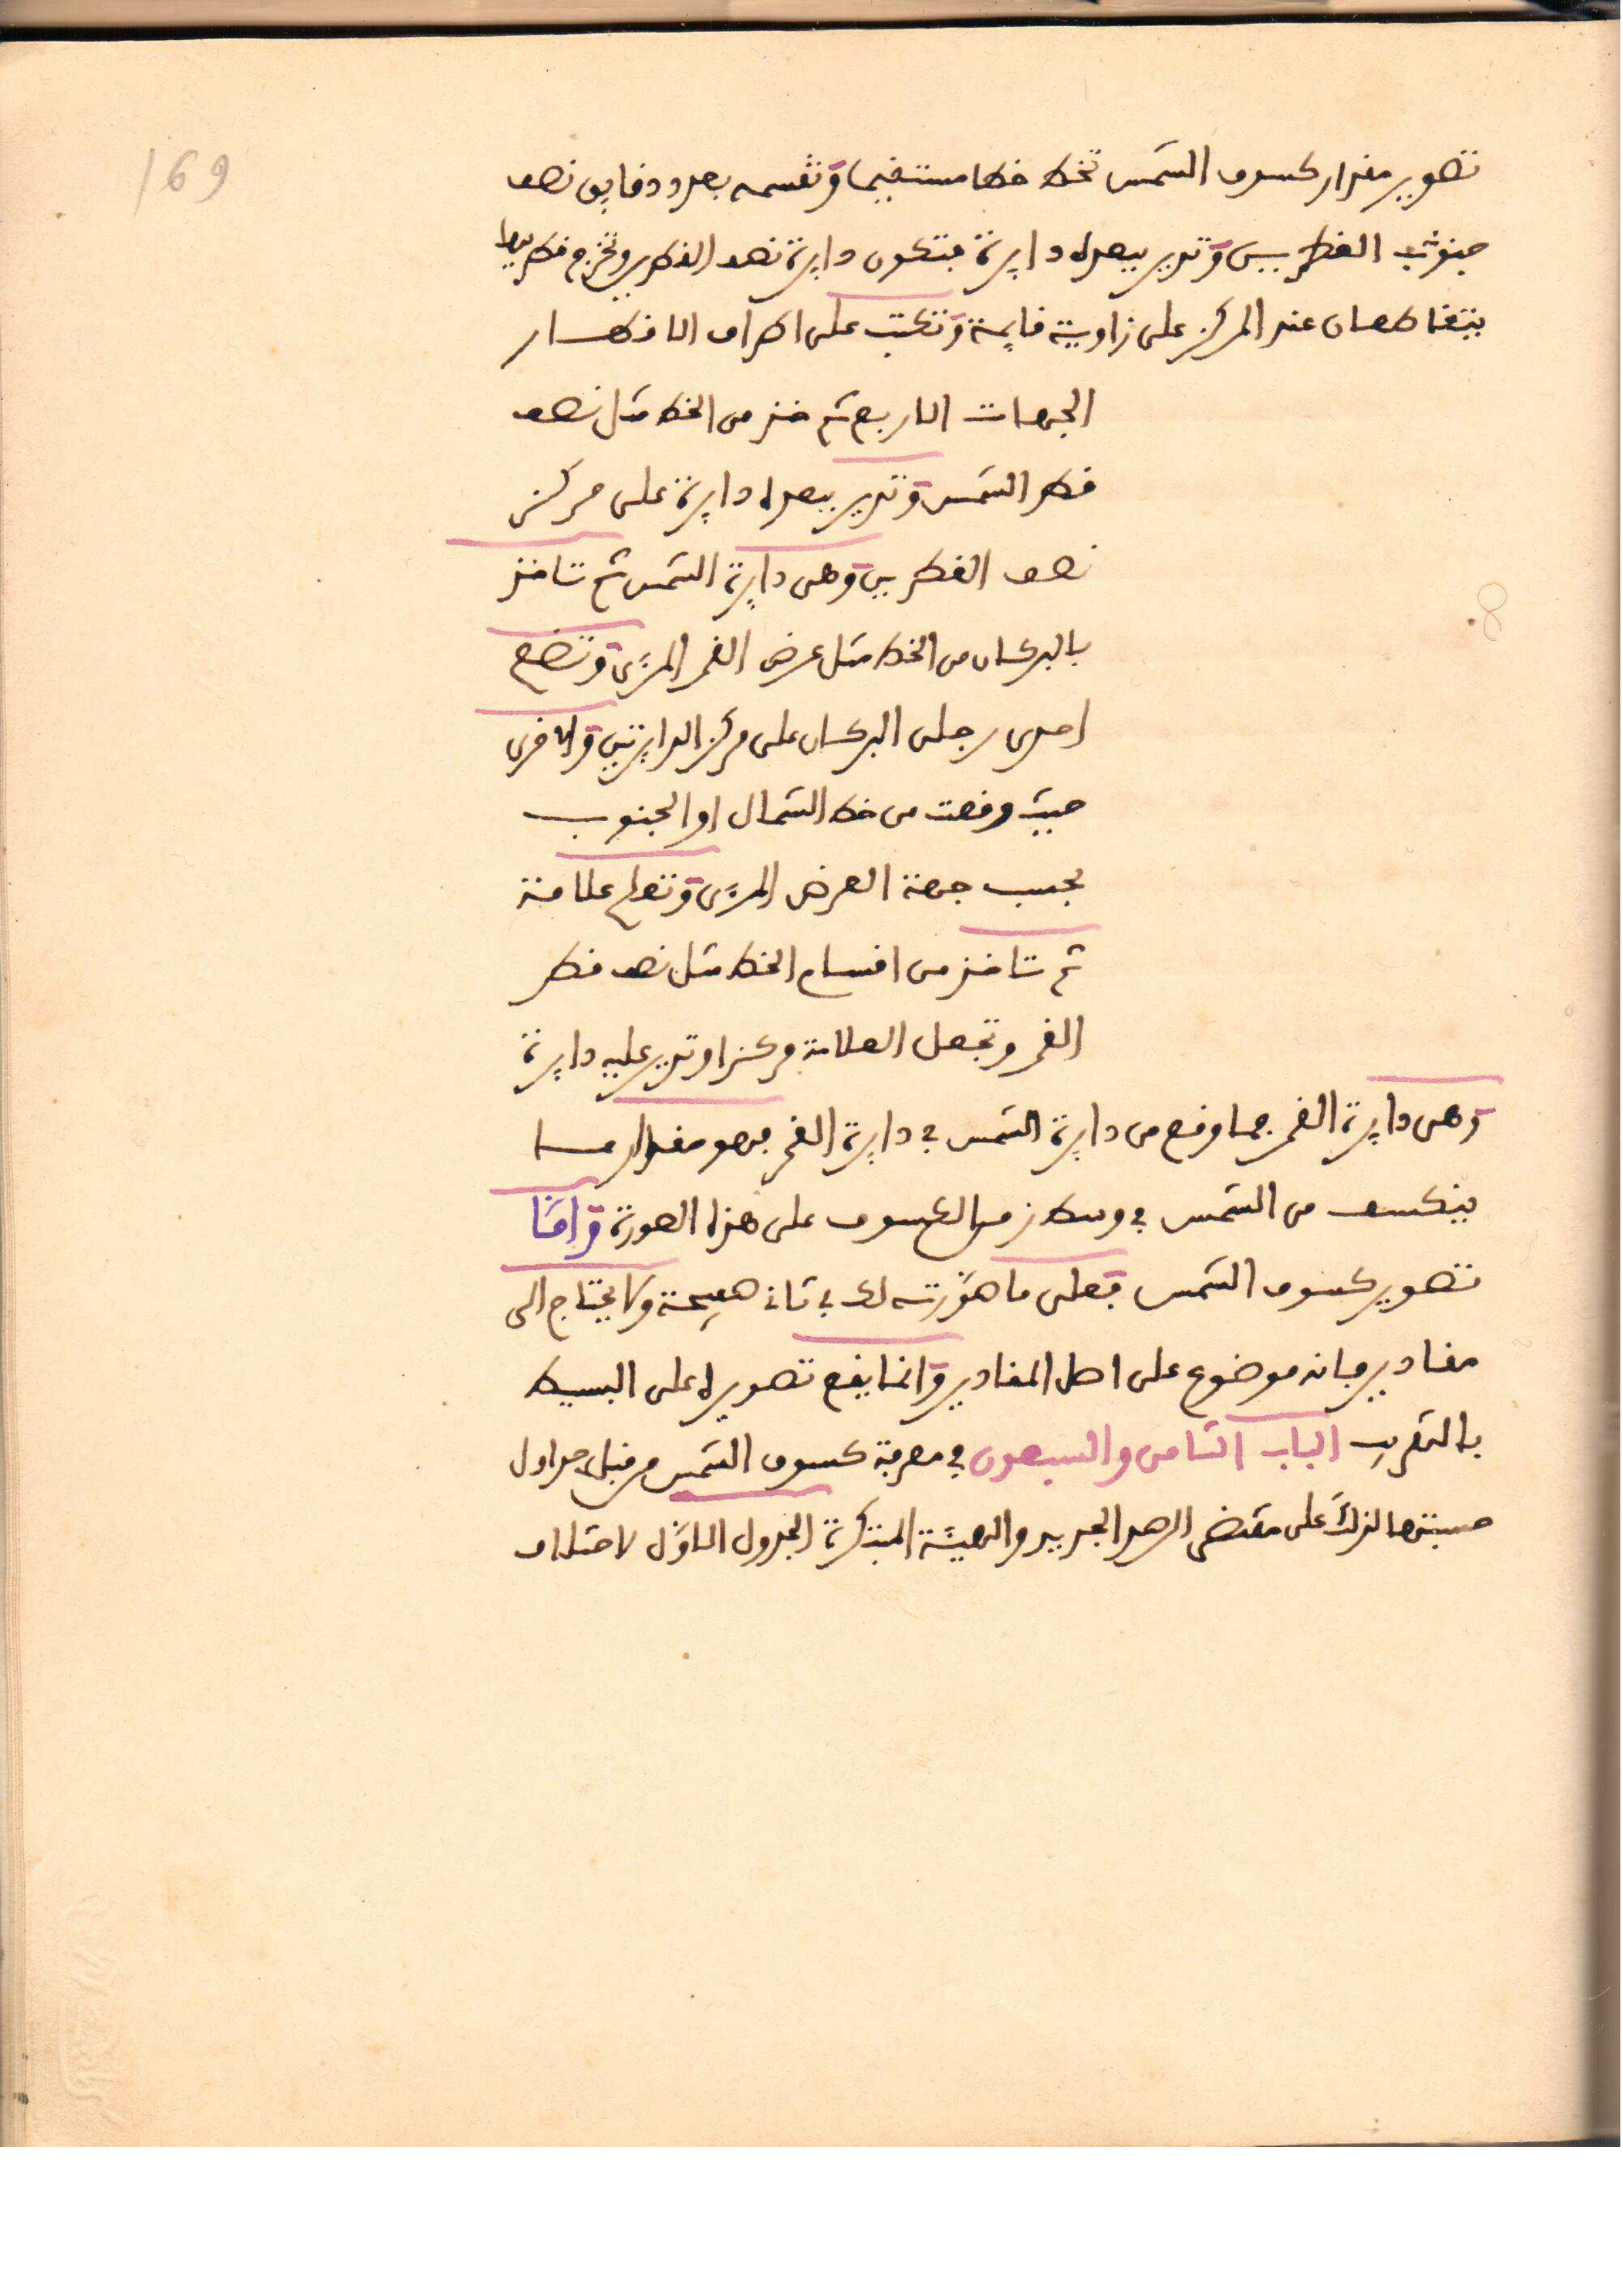 169
تصوير مقدار كسوف الشمس تخط خطا مستقيما وتقسمه بعدد دقايق نصف
القطرين وتدير ببعده دايرة فتكون دايرة نصف القطرين وتخرج قطريها
يتقاطعان عند المركز على زاوية قايمة وتكتب على اطراف الاقطار
الجهات الاربع ثم خذ من الخط مثل نصف
قطر الشمس وتدير ببعده دايرة على مركز
نصف القطرين وهى دايرة الشمس ثم تاخذ
بالبركار من الخط مثل عرض القمر المرءى وتضع
احدى رجلى البركار على مركز الدايرتين والاخرى
حيث وقعت من خط الشمال او الجنوب
بحسب جهة العرض المرءى وتعلم علامة
ثم تاخذ من اقسام الخط مثل نصف قطر
القمر وتجعل العلامة مركزا وتدير عليه دايرة
وهى دايرة القمر فما وقع من دايرة الشمس في دايرة القمر فهو مقدار ما
ينكسف من الشمس في وسط زمن الكسوف على هذه الصورة وامّا
تصوير كسوف الشمس فعلى ما صوّرته لك في ثانى صفحة ولا يحتاج الى
مقادير فانه موضوع على اصل المقادير وانما يقع تصويره على البسيط
بالتقريب الباب الثامن والسبعون في معرفة كسوف الشمس من قبل جداول
حسبتها لذلك على مقتضى الرصد الجديد والهيئة المبتكرة الجدول الاوّل لاختلاف
8